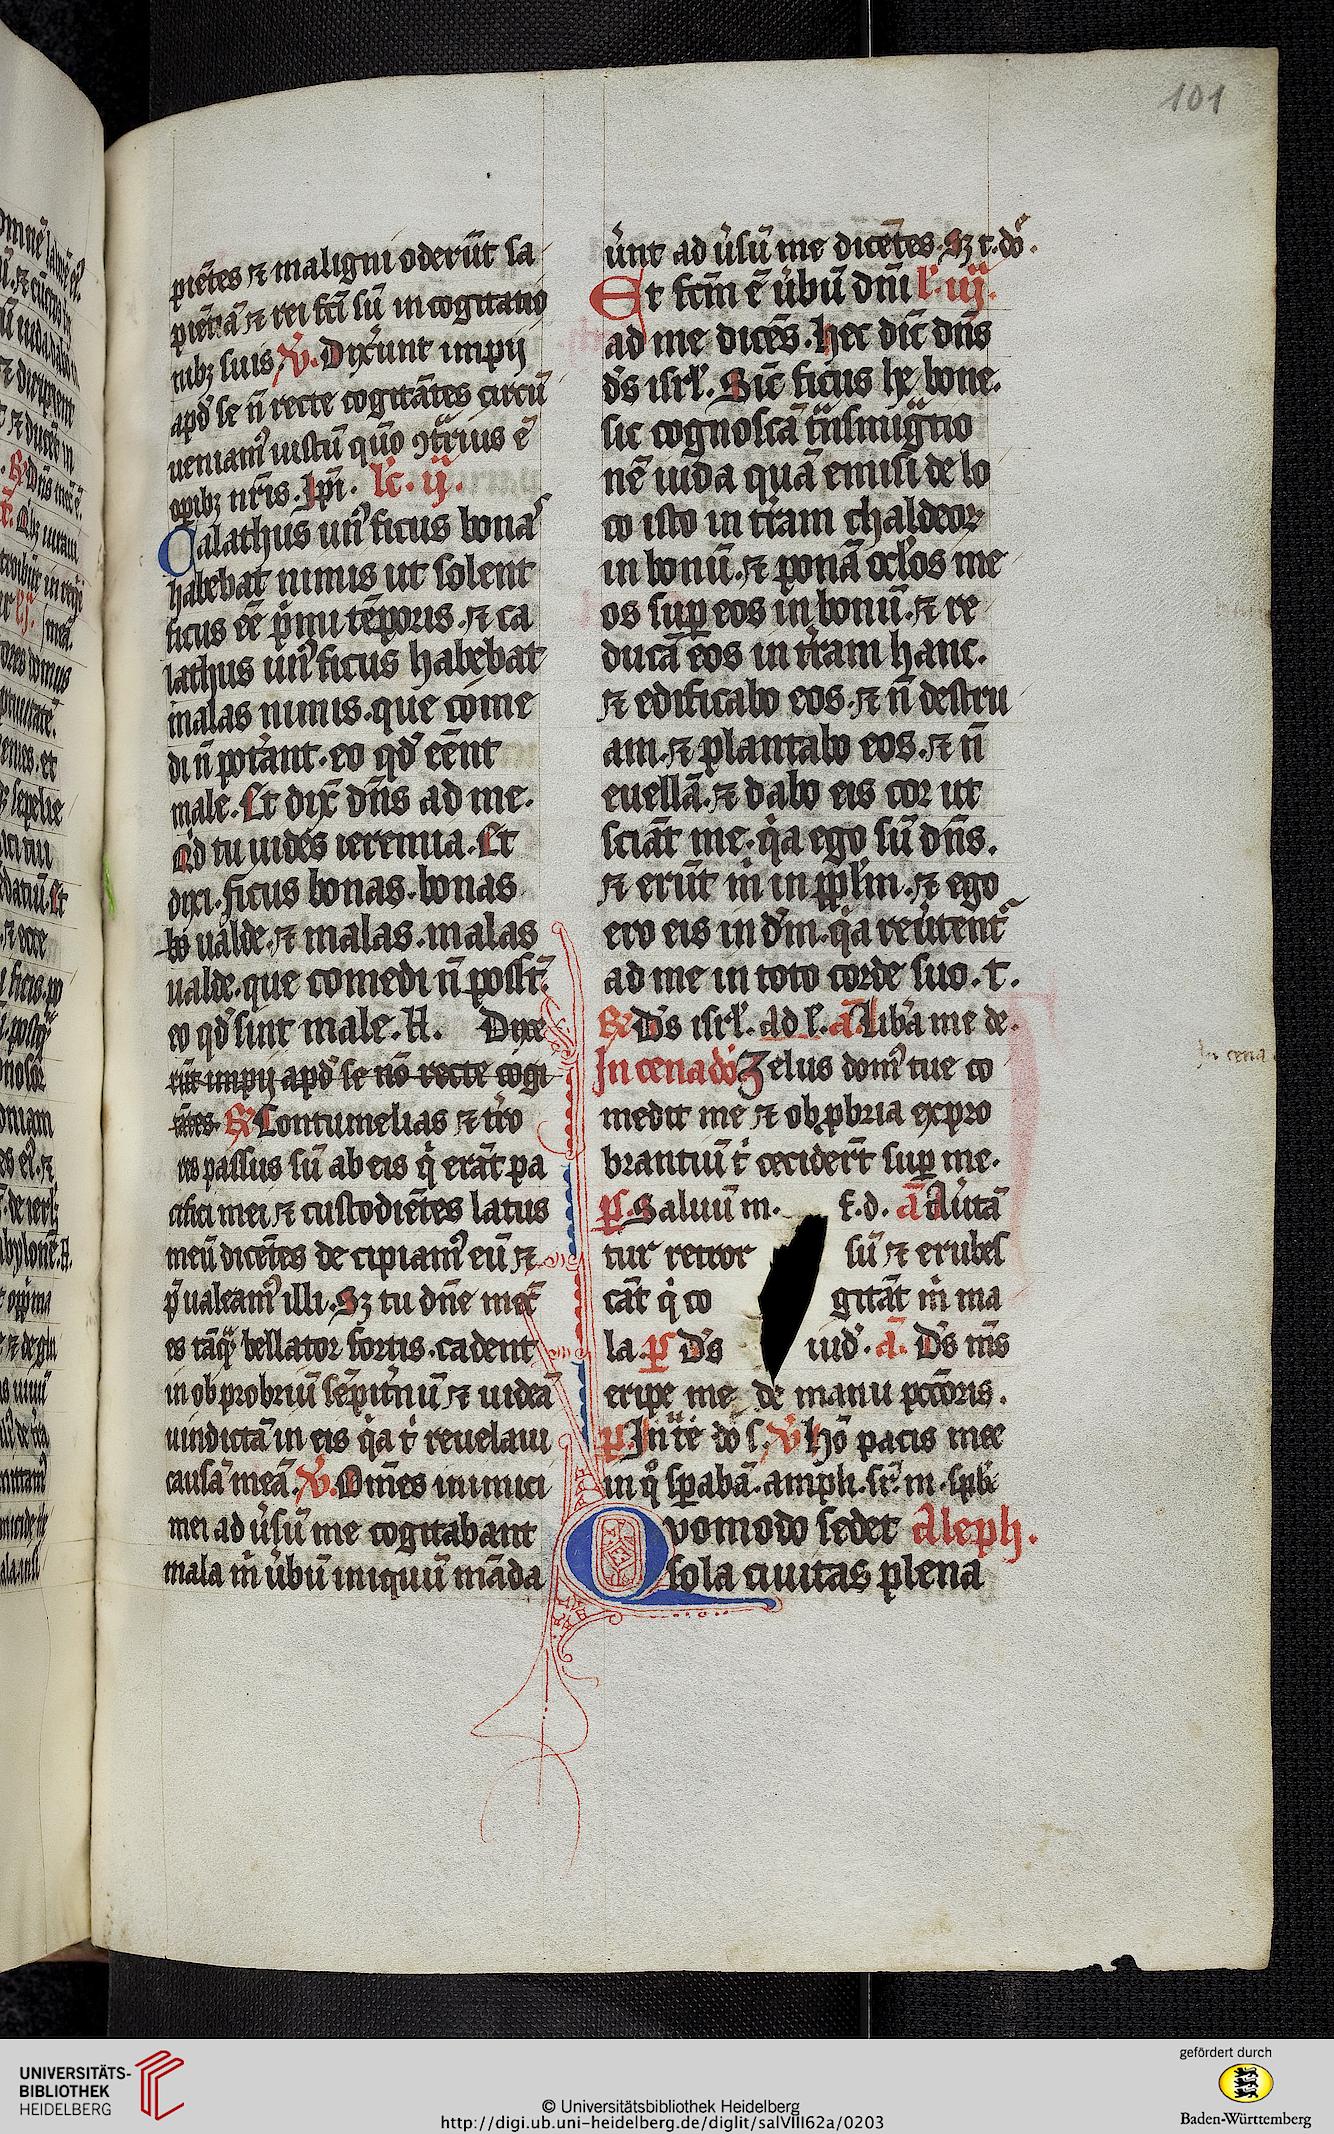 101
piẽtes ⁊ maligni oderũt sa
piẽtiã ⁊ rei fc̃i sũ in cogitatio
nibꝫ suis V̉. Dixerunt impij
apd̓ se ñ recte cogitãtes circũ
ueniamꝰ iustũ qm̃o ꝯtrarius ẽ
opibꝫ nr̃is. Ip̃i. lc̃. ij.
Calathus unꝰ ficus bonas
habebat nimis ut solent
ficus eẽ p̃mi tẽporis. ⁊ ca
lathus unꝰ ficus habebat
malas nimis. que come
di ñ potãnt. eo qd̓ eẽnt
male. Et dix̃ dñs ad me.
Qd̓ tu uides ieremia. Et
dixi. ficus bonas. bonas
ualde. ⁊ malas. malas
ualde. que comedi ñ possũt.
eo qd̓ sint male. H. Dixe
rũt impij apd̓ se nõ recte cogi
tãtes. R̉ Contumelias ⁊ t̃ro
res passus sũ ab eis q̓ erãt pa
cifici mei ⁊ custodiẽtes latus
meũ dicẽtes de cipiamꝰ eũ ⁊
p̃ualeamꝰ illi. Sꝫ tu dñe mecũ
es tãq̃ bellator fortis. cadent
in obprobriũ sẽpit̃nũ ⁊ uideã
uindictã in eis q̓a t̓ reuelaui
causã meã. V̉. Om̃es inimici
mei ad ũsũ me cogitabant
mala m̃ ũbũ iniquũ mãda
ũnt ad ũsũ me dicẽtes. Sꝫ t. dõ.
Et fc̃m ẽ ũbũ dñi l̓. iij.
ad me dicẽs. hec dic̃ dñs
d̓s isrl̓. Sic̃ ficus he bone.
sic cognoscã t̃nsmigr̃tio
nẽ iuda quã emisi de lo
co isto in t̃ram chaldeoꝝ
in bonũ. ⁊ ponã ocl̓os me
os suꝑ eos in bonũ. ⁊ re
ducã eos in t̃ram hanc.
⁊ edificabo eos. ⁊ ñ destru
am. ⁊ plantabo eos. ⁊ ñ
euellã. ⁊ dabo eis cor ut
sciãt me. q̓a ego sũ dñs.
⁊ erũt m̓ in ppl̓m. ⁊ ego
ero eis in d̓m. q̓a reũtent̃
ad me in toto corde suo. t.
R̉ D̓s isrl̓. ad l̓. ã. Lib̓a me de.
In cena dõ Zelus domꝰ tue co
medit me ⁊ obꝓbria expro
brantiũ t̓ cecider̃t suꝑ me.
p̃s. Saluũ m. f. d. ã Aũtã
tur retror sũ ⁊ erubes
cãt q̓ co gitãt m̓ ma
la p̃s D̓s iud̓. ã. D̓s m̃s
eripe me de manu pccõris.
p̃s. In te dõ s. V̉ Hõ pacis mee
in qͦ sp̃abã. amph. sr̃. m. spl̓.
Quomodo sedet Aleph.
sola ciuitas plena
In cena
UNIVERSITÄTS-
BIBLIOTHEK
HEIDELBERG
© Universitätsbibliothek Heidelberg
http://digi.ub.uni-heidelberg.de/diglit/salVIII62a/0203
gefördert durch
Baden-Württemberg